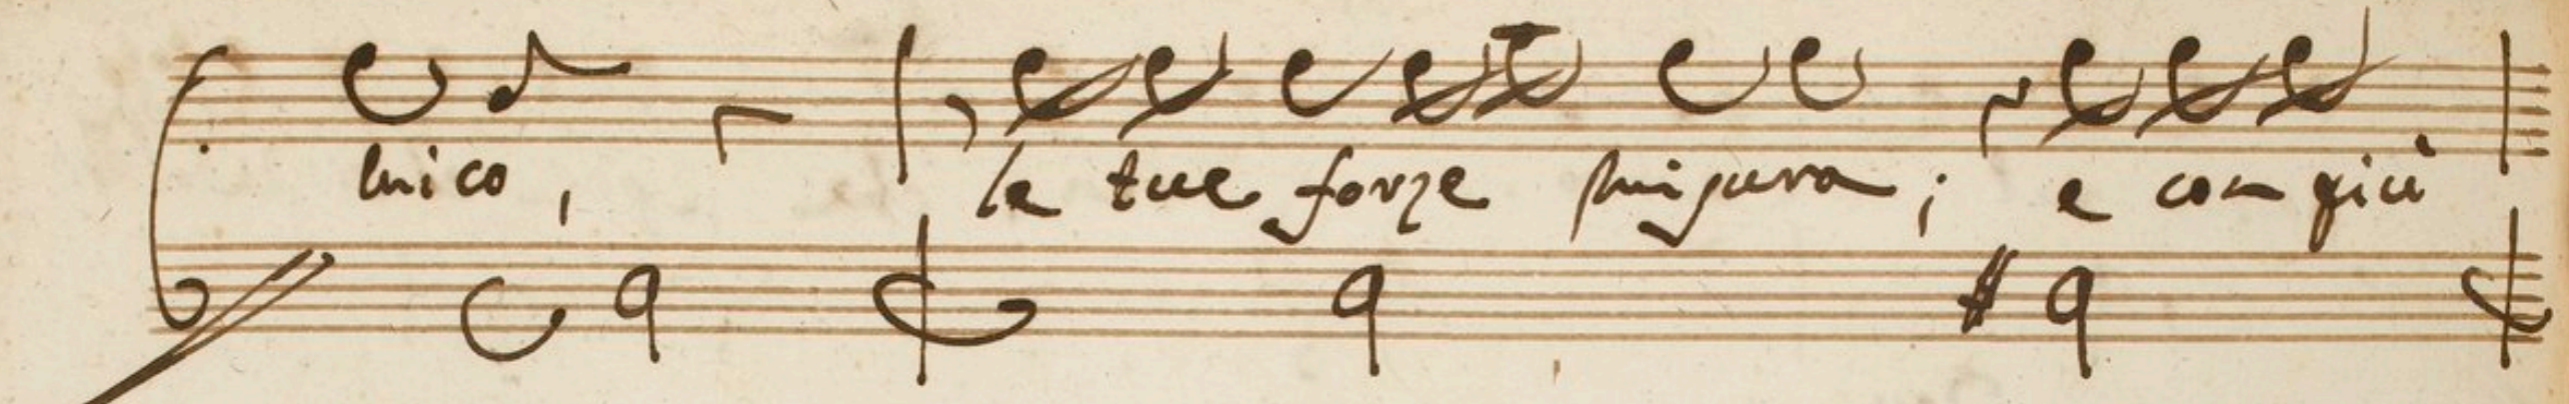 mico, le tue forze misura; e con più